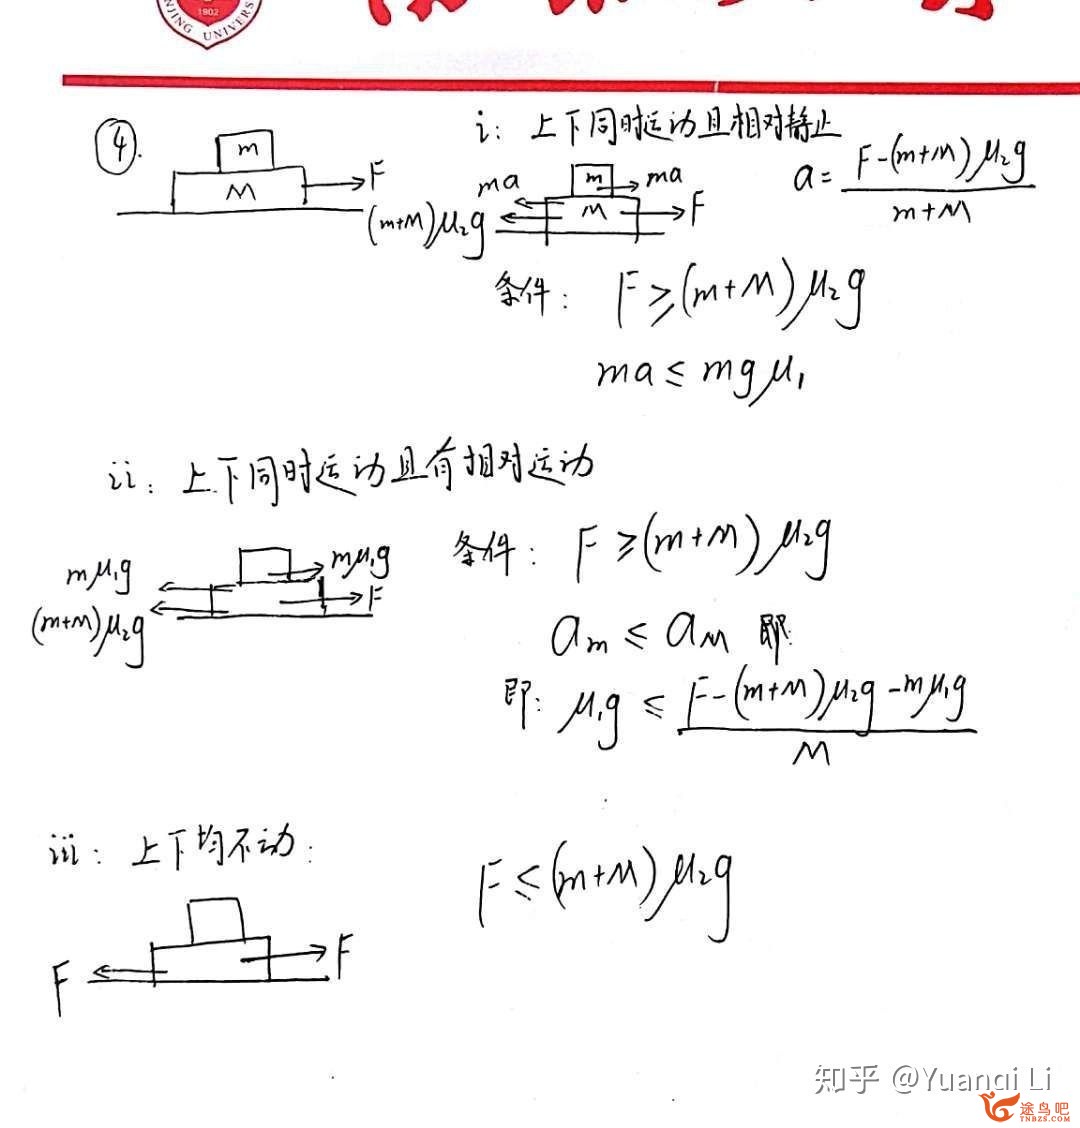 1902
NJING UNIVERS
④.
m
M
F
i: 上下同时运动且相对静止
ma
m
ma
M
F
(m+M)μ₂g
a = (F-(m+M)μ₂g)/(m+M)
条件: F ≥ (m+M)μ₂g
ma ≤ mgμ₁
ii: 上下同时运动且有相对运动
mμ₁g
mμ₁g
(m+M)μ₂g
F
条件: F ≥ (m+M)μ₂g
a_m ≤ a_M 即
即: μ₁g ≤ (F-(m+M)μ₂g-mμ₁g)/M
iii: 上下均不动:
F ≤ (m+M)μ₂g
F
F
知乎 @Yuanqi Li
途鸟吧
TNBZS.COM